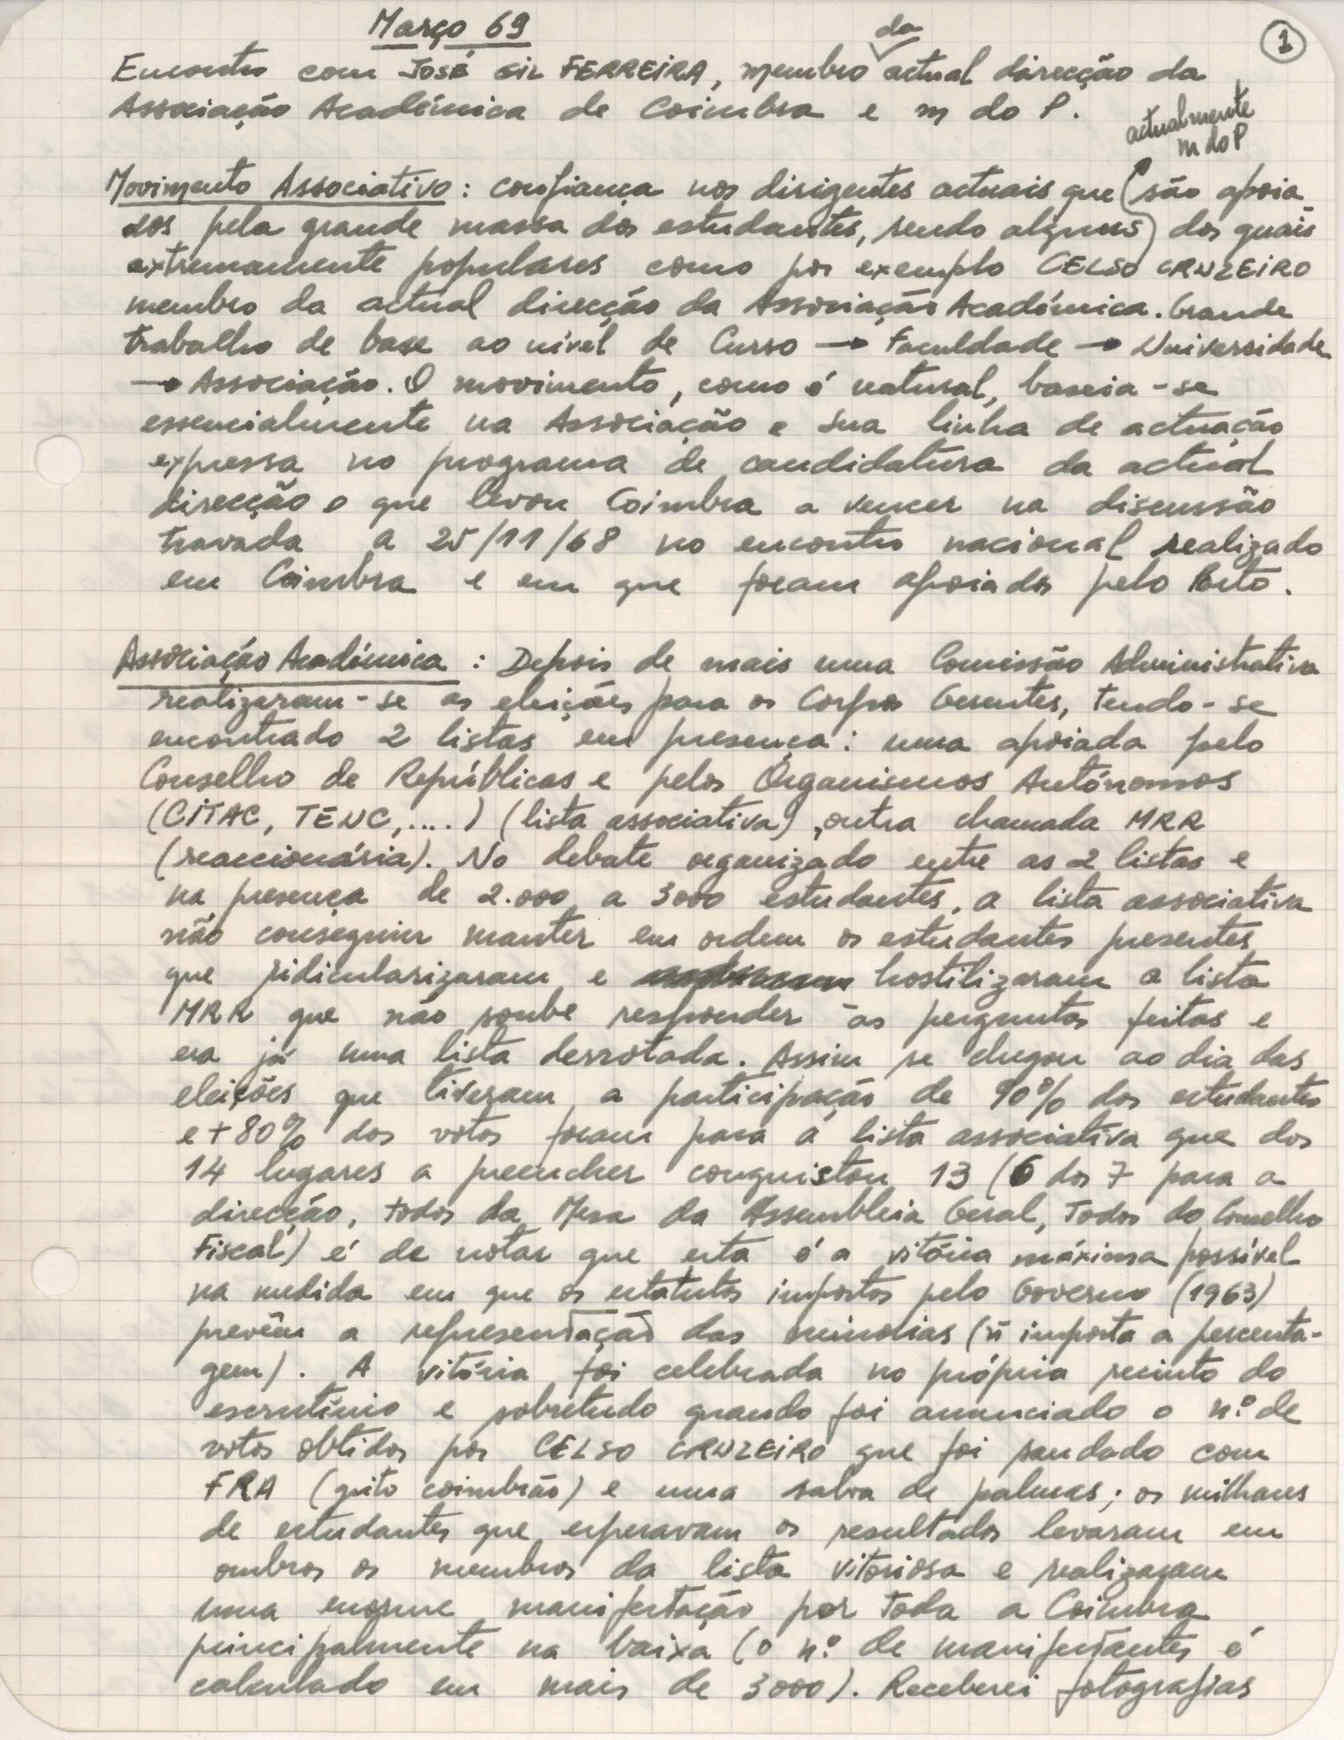 Março 69
1
da
Encontro com JOSÉ GIL FERREIRA, membro actual direcção da
Associação Académica de Coimbra e m do P.
actualmente
m do P
Movimento Associativo: confiança nos dirigentes actuais que são apoia
dos pela grande massa dos estudantes, sendo alguns dos quais
extremamente populares como por exemplo CELSO CRUZEIRO
membro da actual direcção da Associação Académica. Grande
trabalho de base ao nível de Curso → Faculdade → Universidade
→ Associação. O movimento, como é natural, baseia-se
essencialmente na Associação e sua linha de actuação
expressa no programa de candidatura da actual
direcção o que levou Coimbra a vencer na discussão
travada a 25/11/68 no encontro nacional realizado
em Coimbra e em que foram apoiados pelo Porto.
Associação Académica: Depois de mais uma Comissão Administrativa
realizaram-se as eleições para os Corpos Gerentes, tendo-se
encontrado 2 listas em presença: uma apoiada pelo
Conselho de Repúblicas e pelos Organismos Autónomos
(CITAC, TEUC,....) (lista associativa), outra chamada MRR
(reaccionária). No debate organizado entre as 2 listas e
na presença de 2.000 a 3000 estudantes, a lista associativa
não conseguiu manter em ordem os estudantes presentes
que ridicularizaram e hostilizaram a lista
MRR que não soube responder às perguntas feitas e
era já uma lista derrotada. Assim se chegou ao dia das
eleições que tiveram a participação de 90% dos estudantes
e +80% dos votos foram para a lista associativa que dos
14 lugares a preencher conquistou 13 (6 dos 7 para a
direcção, todos da Mesa da Assembleia Geral, Todos do Conselho
Fiscal) é de notar que esta é a vitória máxima possível
na medida em que os estatutos impostos pelo Governo (1963)
prevêm a representação das minorias (ñ importa a percenta-
gem). A vitória foi celebrada no próprio recinto do
escrutínio e sobretudo quando foi anunciado o n.º de
votos obtidos por CELSO CRUZEIRO que foi saudado com
FRA (grito coimbrão) e uma salva de palmas; os milhares
de estudantes que esperavam os resultados levaram em
ombros os membros da lista vitoriosa e realizaram
uma enorme manifestação por toda a Coimbra
principalmente na baixa (o n.º de manifestantes é
calculado em mais de 3000). Receberei fotografias